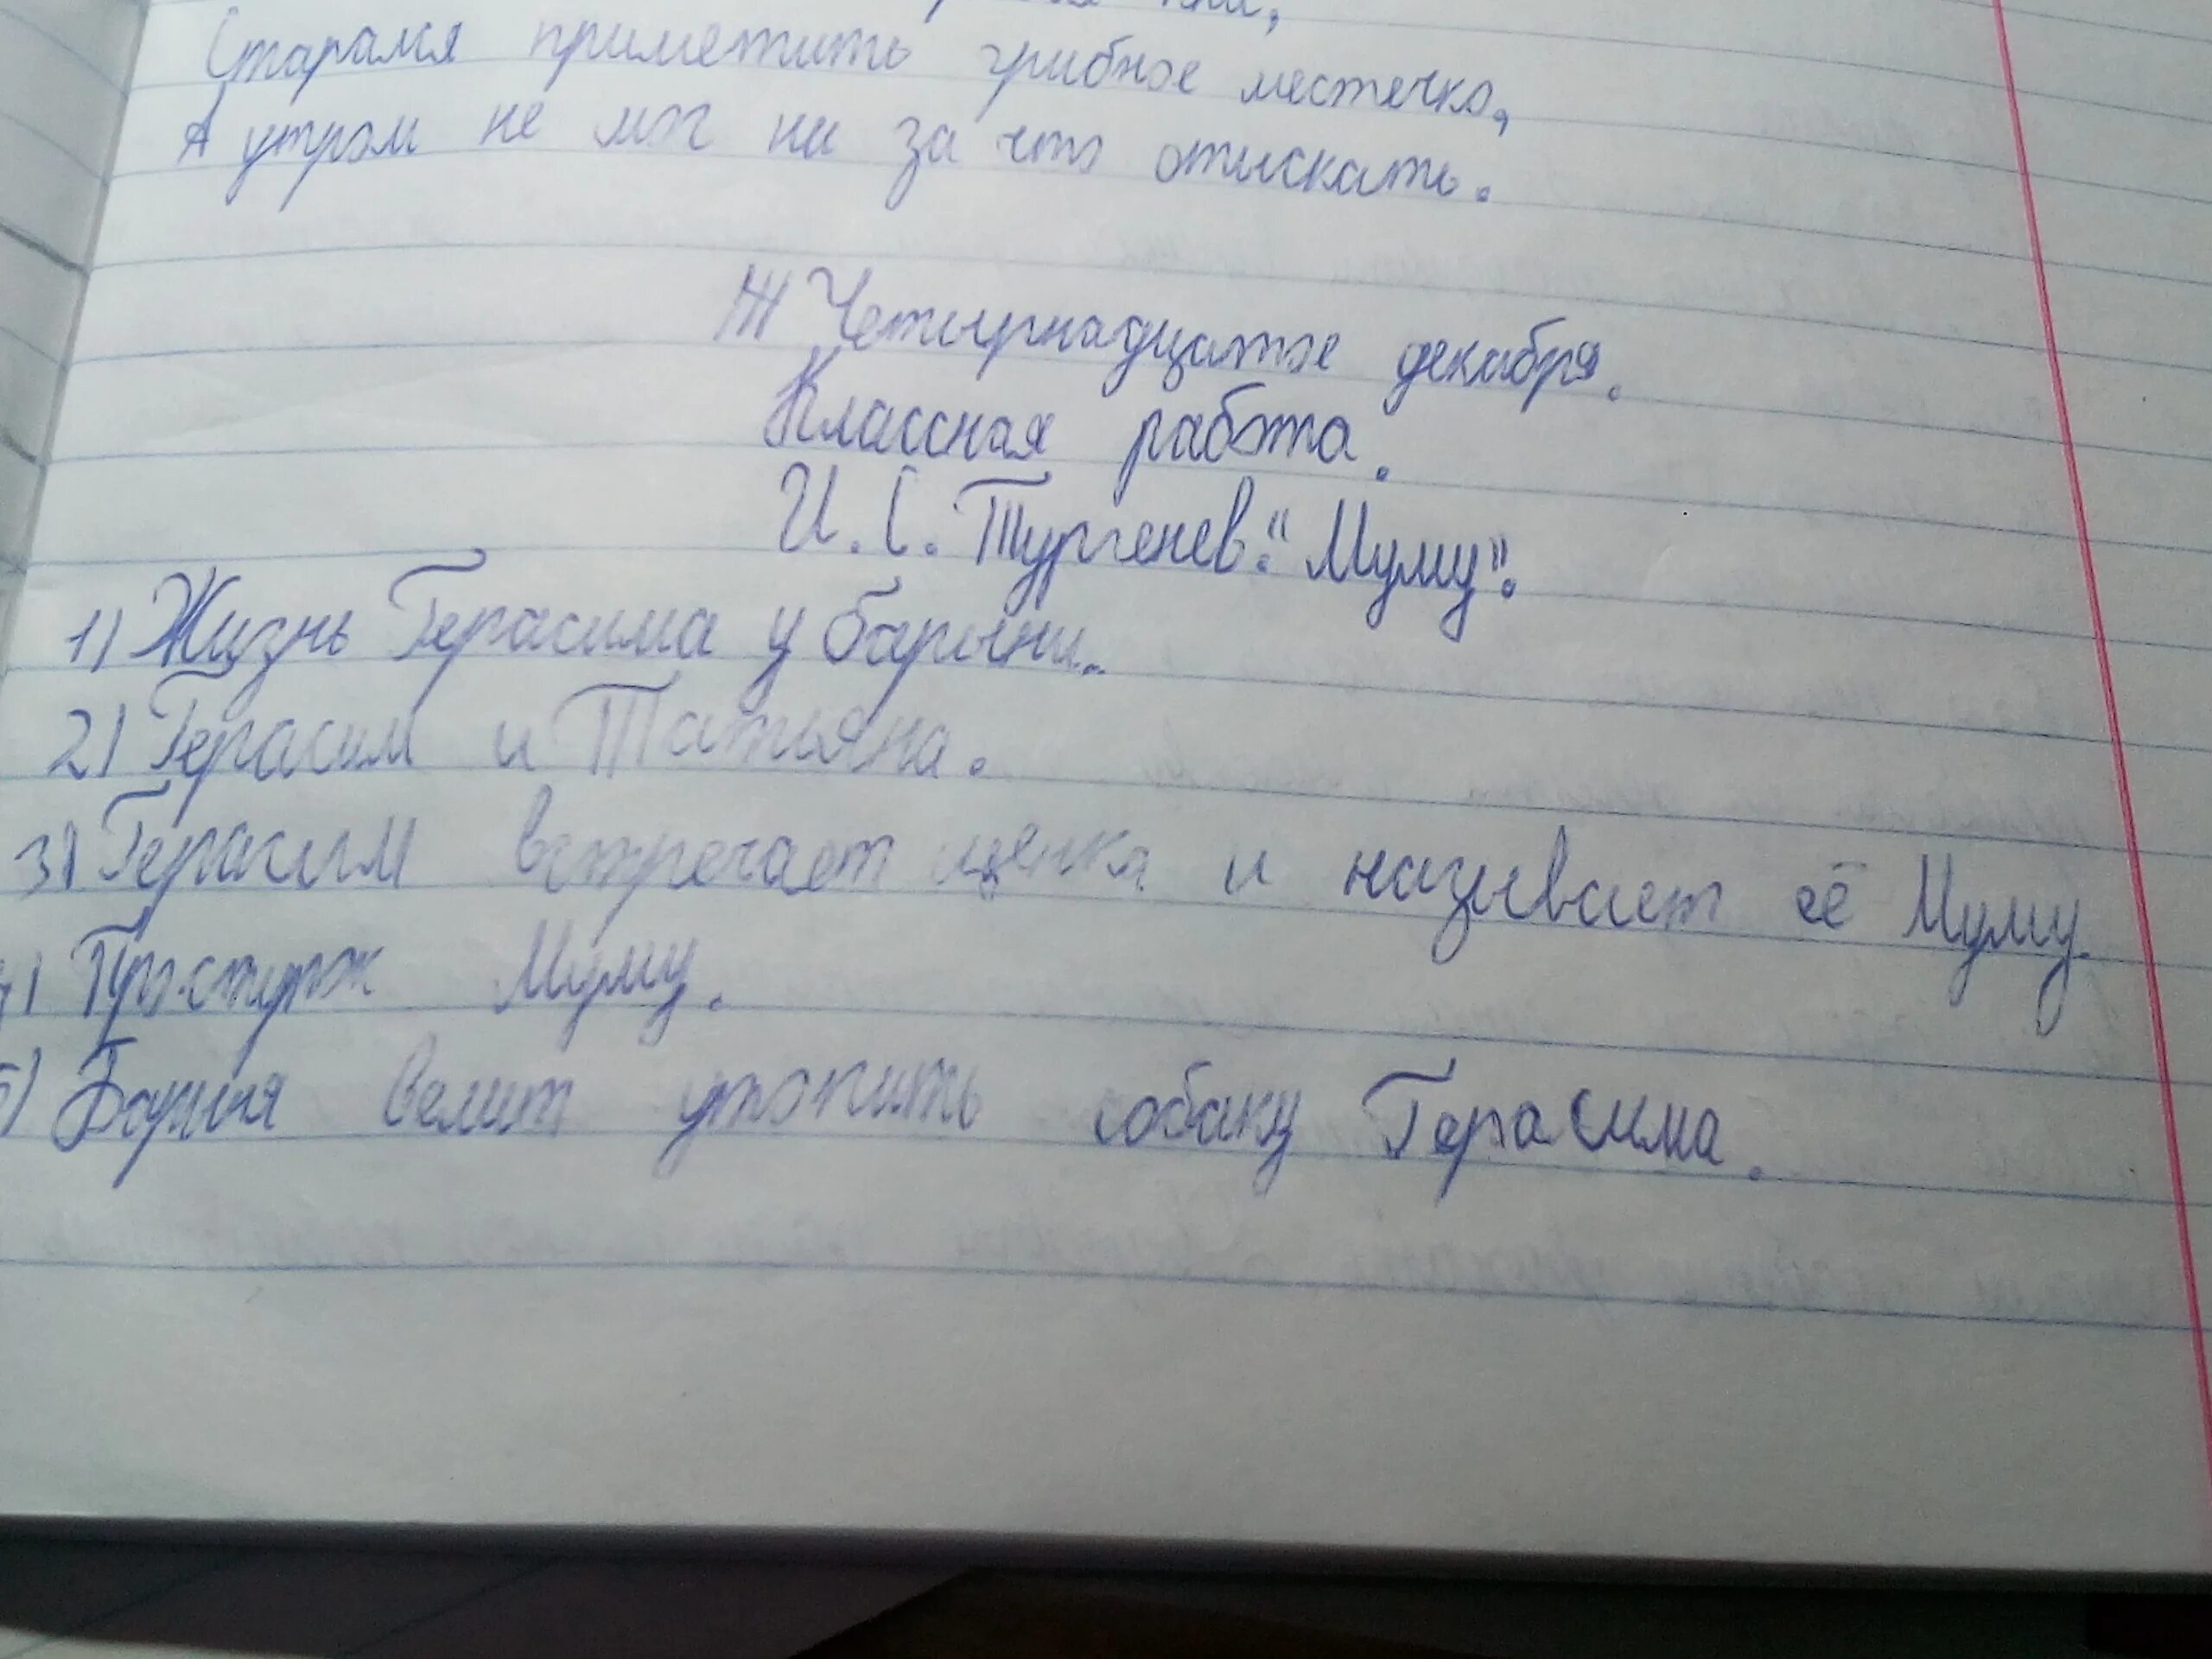 Старался приметить грибное местечко,
А утром не мог ни за что отыскать.
Четырнадцатое декабря.
Классная работа.
И. С. Тургенев. "Муму".
1) Жизнь Герасима у барыни.
2) Герасим и Татьяна.
3) Герасим встречает щенка и называет её Муму.
4) Проступок Муму.
5) Барыня велит утопить собаку Герасима.